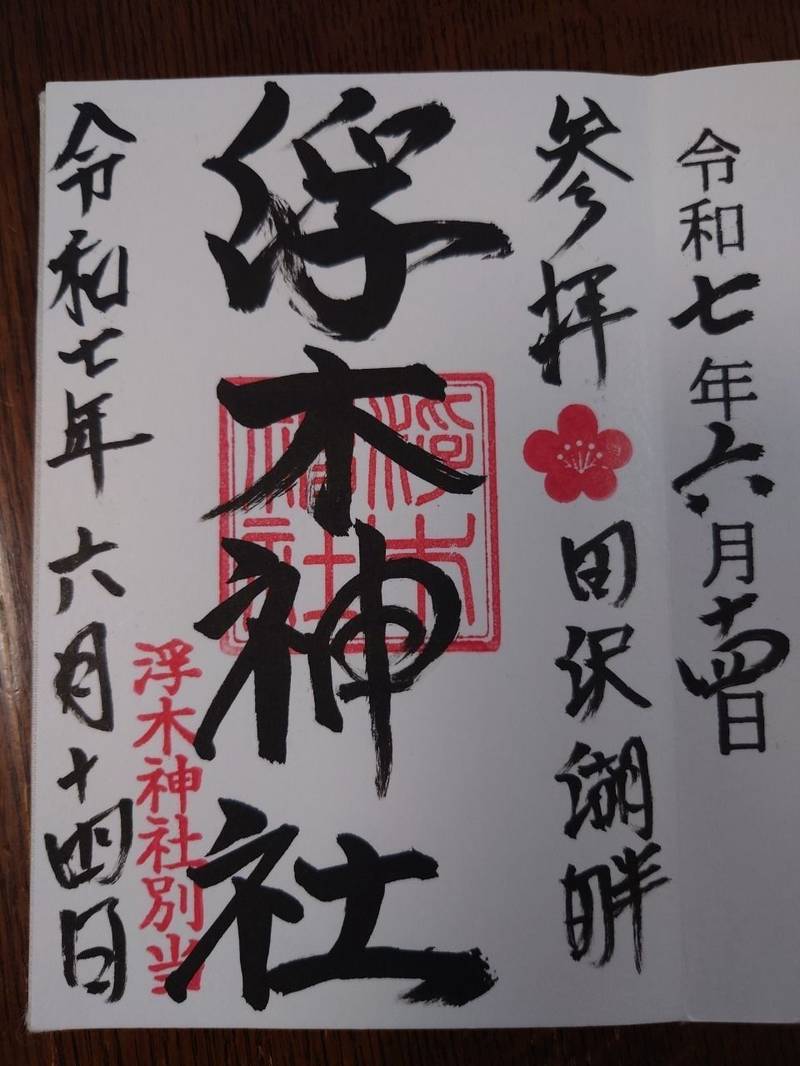 令和七年六月十四日
参拝
田沢湖畔
浮木神社
浮木神社
浮木神社別当
令和七年六月十四日